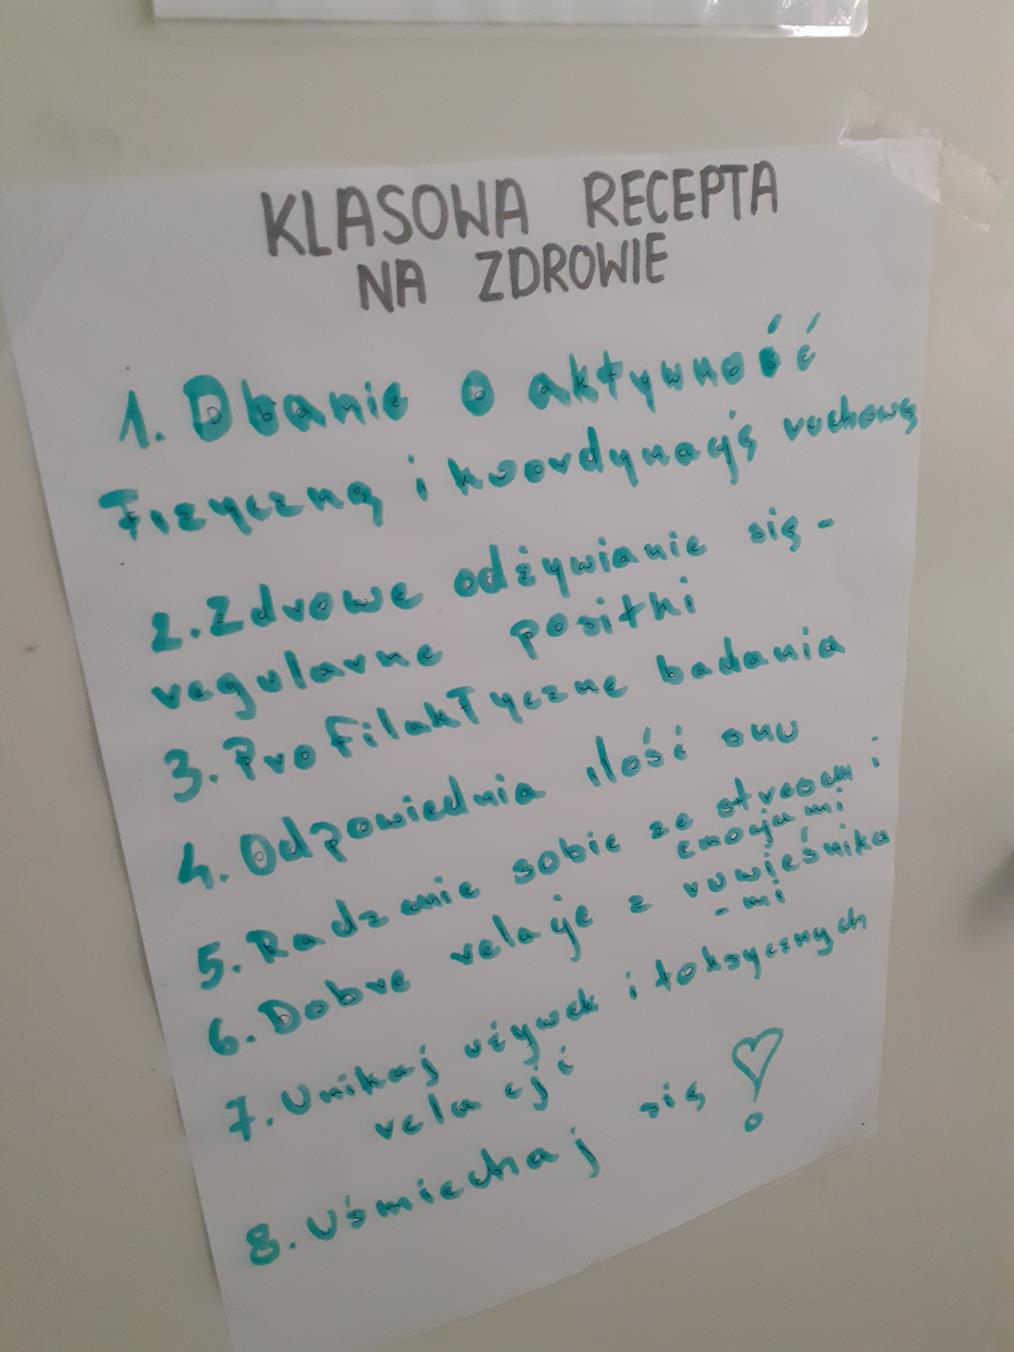 KLASOWA RECEPTA
NA ZDROWIE
1. Dbanie o aktywność
Fizyczną i koordynację ruchową
2. Zdrowe odżywianie się -
regularne posiłki
3. Profilaktyczne badania
4. Odpowiednia ilość snu
5. Radzenie sobie ze stresem i
emocjami
6. Dobre relacje z rówieśnika
- mi
7. Unikaj używek i toksycznych
relacji
8. Uśmiechaj się